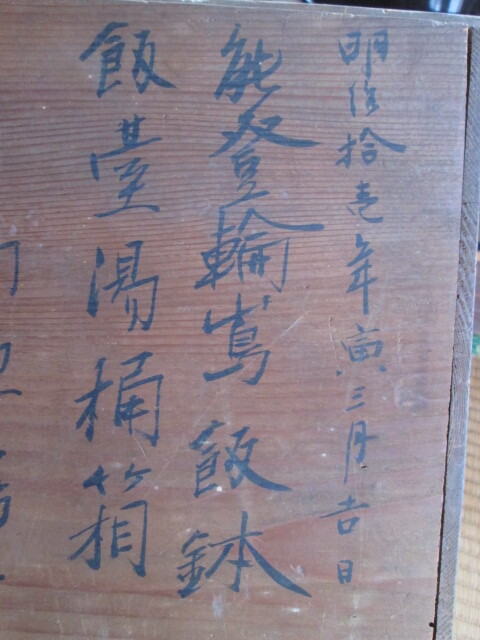 明治拾壱年寅三月吉日
能登輪嶌飯鉢
飯臺湯桶箱